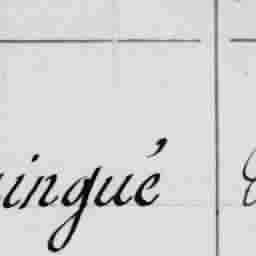 ingué